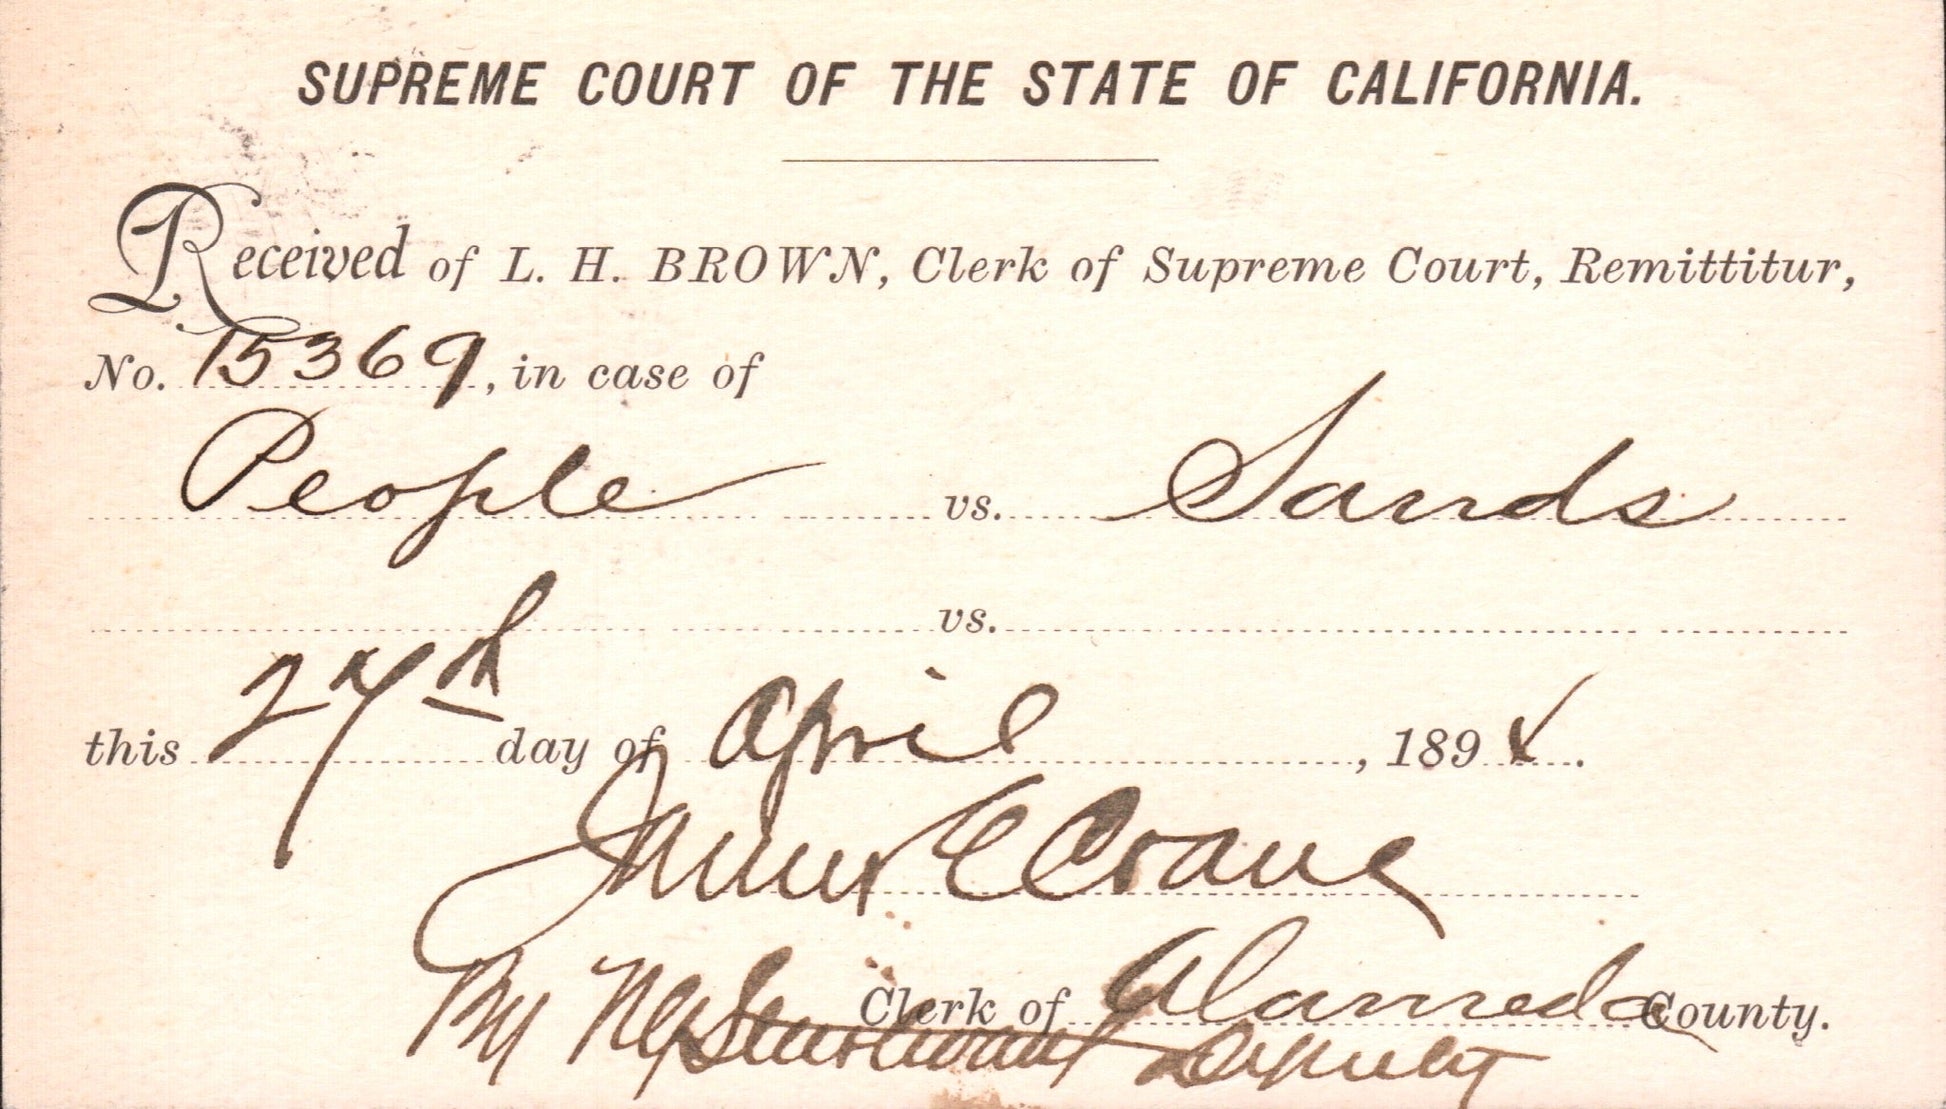 SUPREME COURT OF THE STATE OF CALIFORNIA.
Received of L. H. BROWN, Clerk of Supreme Court, Remittitur,
No. 15369, in case of
People vs. Sands
vs.
this 27th day of April, 189
James E Crane
Clerk of Alameda County.
By Deputy